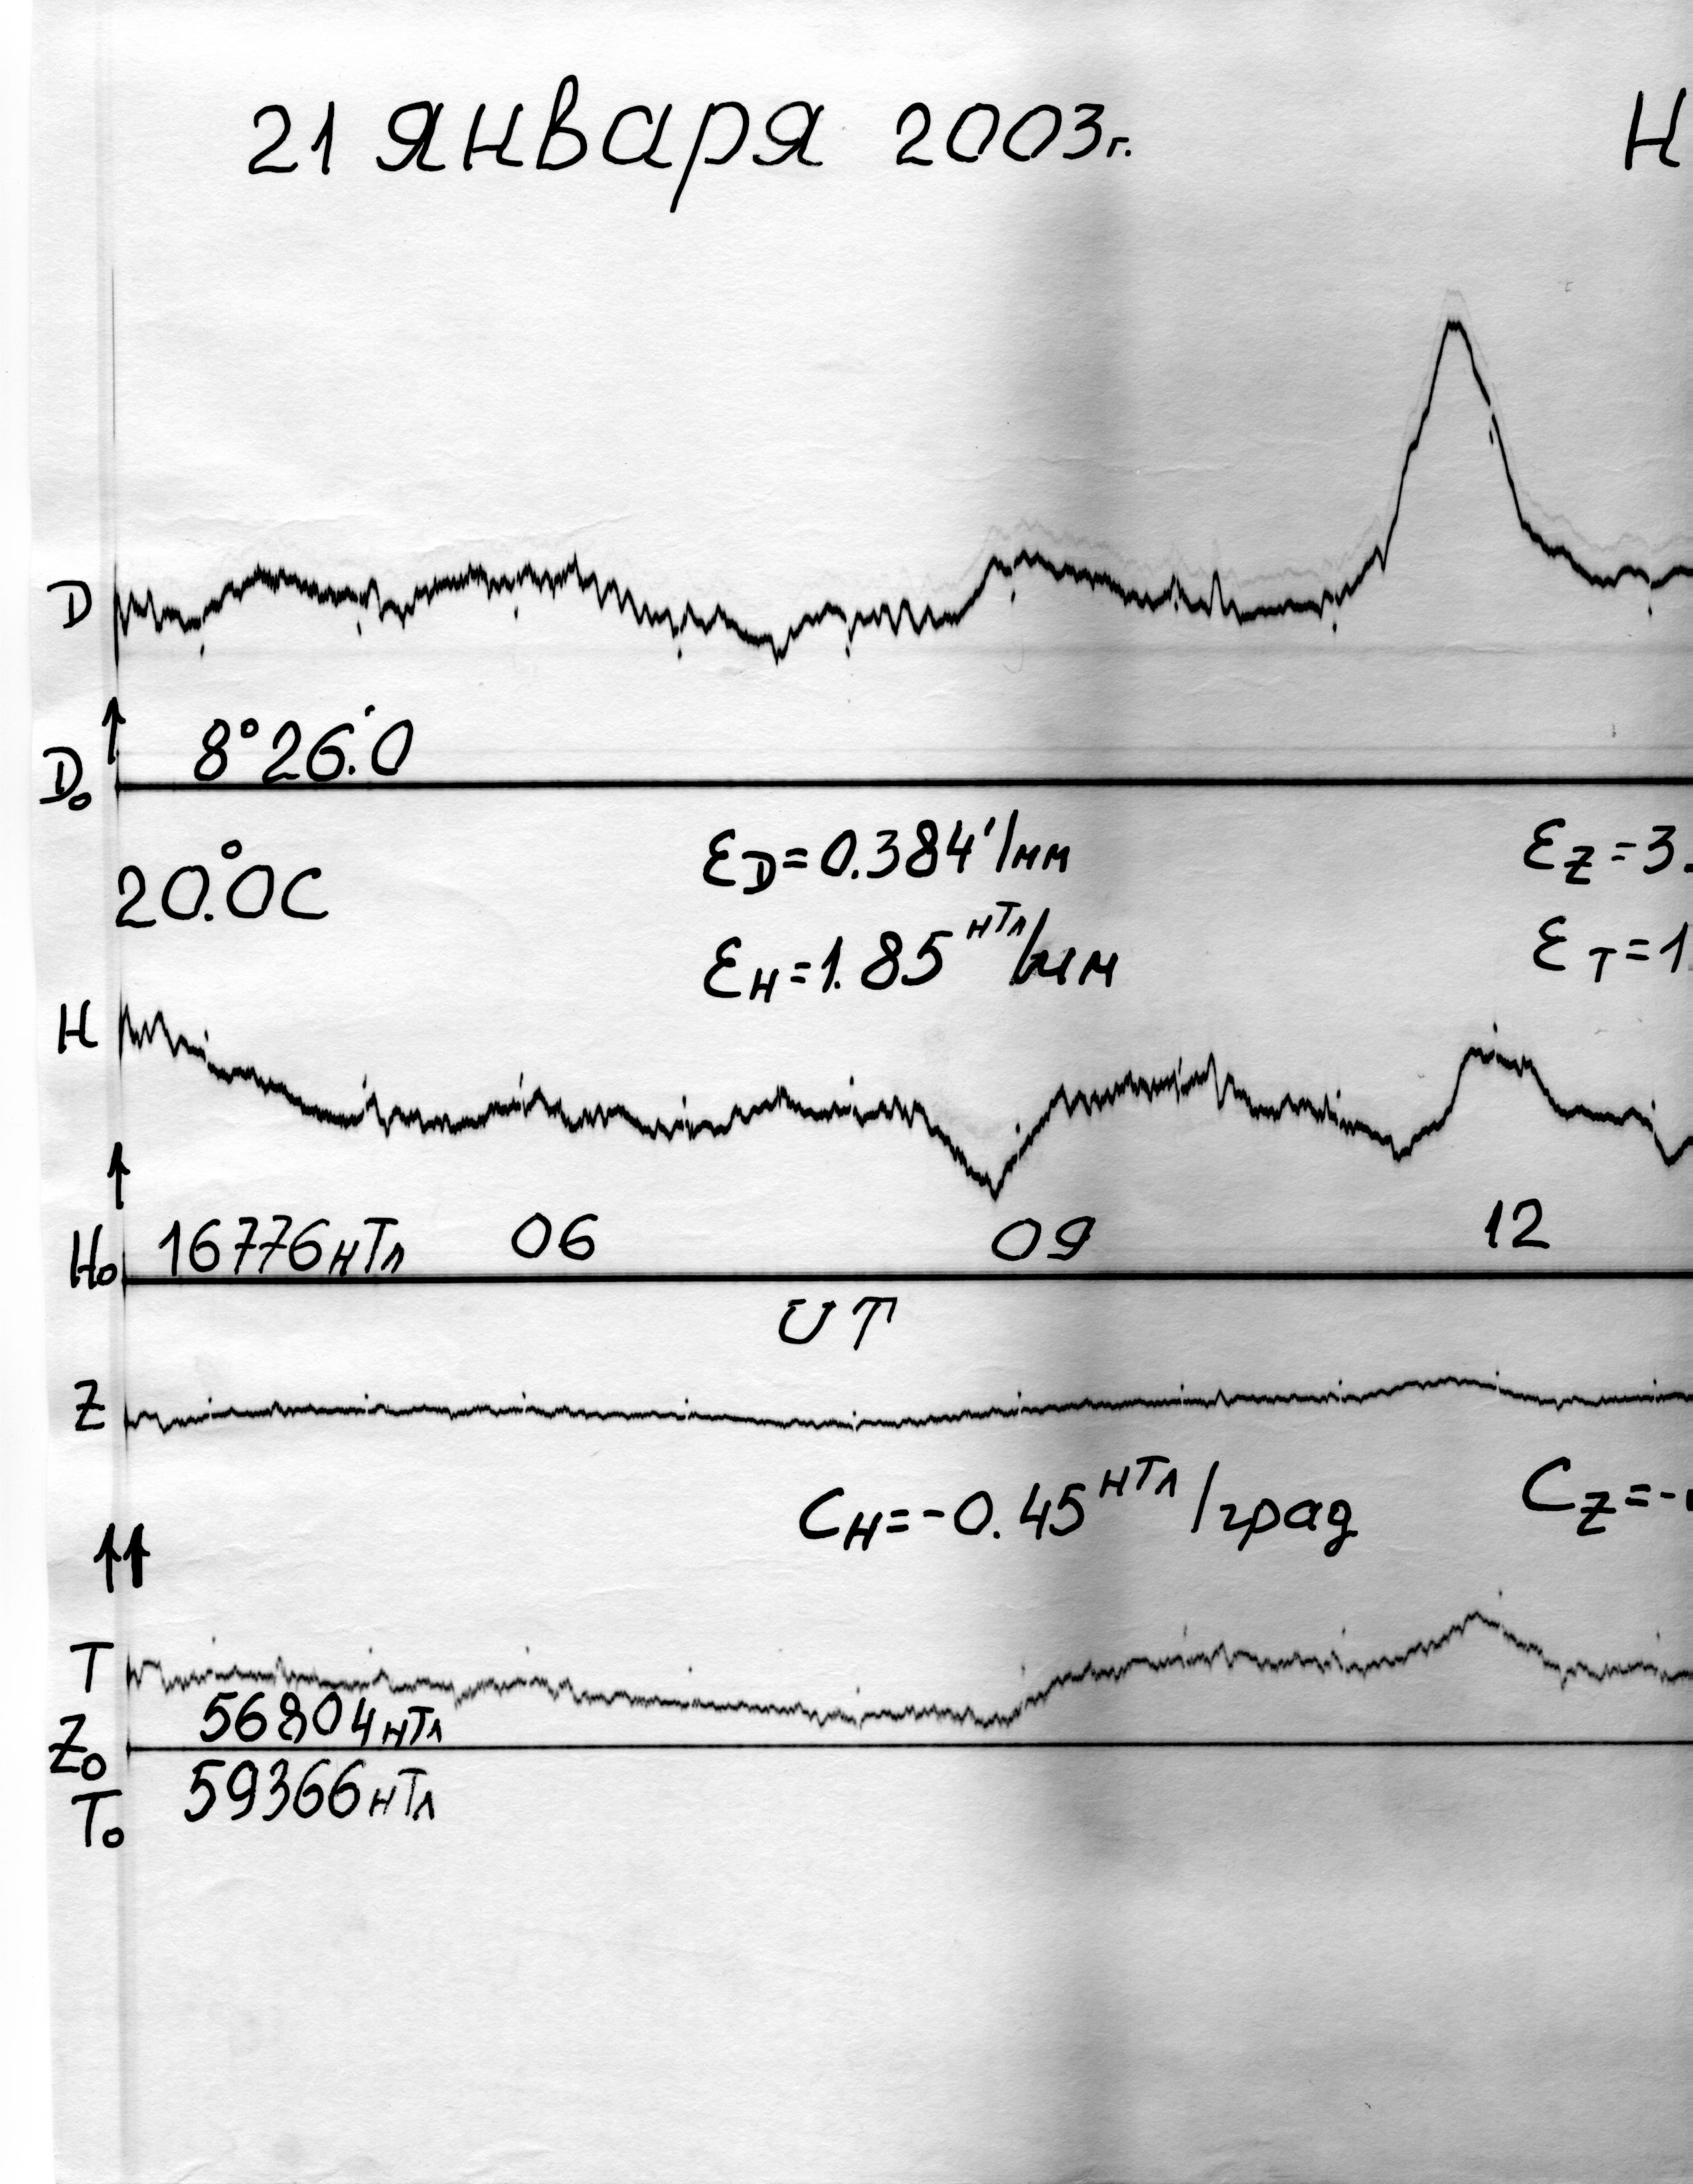 21 января 2003г. Н
D
8°26.′0
D₀
εD=0.384′/мм εZ=3.
20.°0С
εH=1.85нТл/мм εT=1
H
H₀ 16776нТл 06 09 12
UT
Z
CH=-0.45нТл/град CZ=-
T
56804нТл
Z₀
59366нТл
T₀